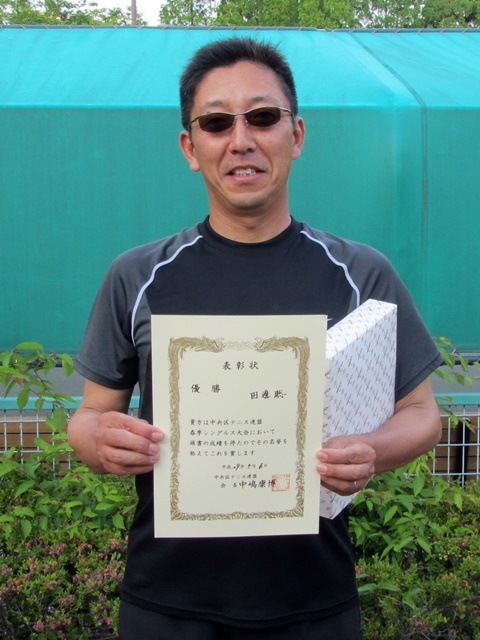 表彰状
優勝 田邉殿
貴方は中央区テニス連盟
春季シングルス大会において
頭書の成績を得たのでその名誉を
称えてこれを賞します
平成
中央区テニス連盟
会長 中嶋康博